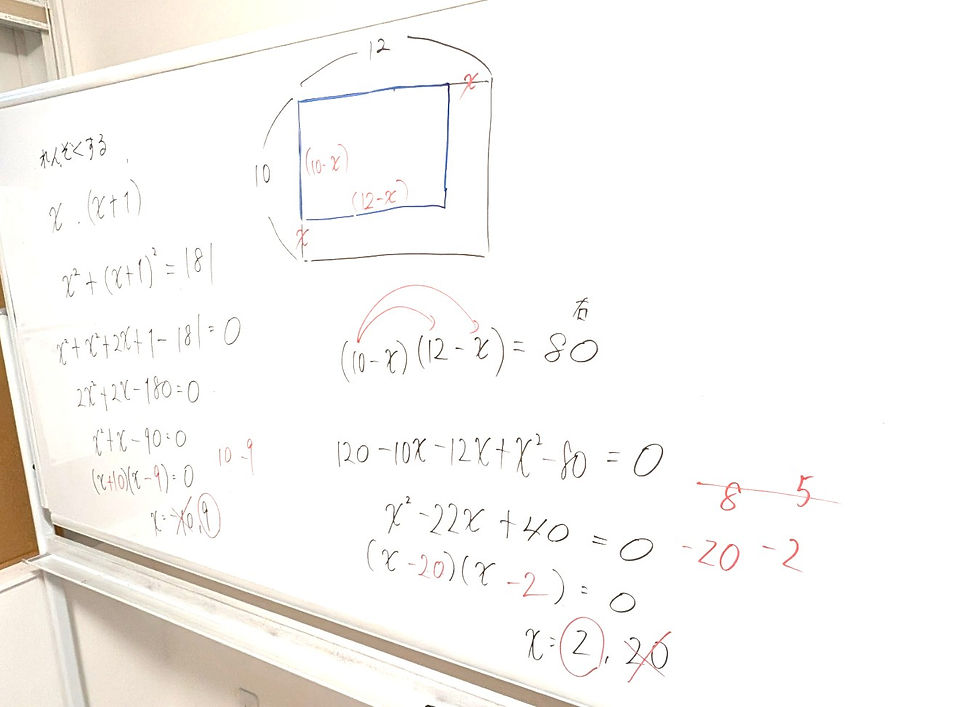 れんぞくする
x . (x+1)
x² + (x+1)² = 181
x²+x²+2x+1-181=0
2x²+2x-180=0
x²+x-90=0
(x+10)(x-9)=0
10 -9
x=-10, 9
12
x
10
(10-x)
(12-x)
x
右
(10-x)(12-x)= 80
120-10x-12x+x²-80 = 0
8 5
x²-22x+40 = 0
-20 -2
(x-20)(x-2)=0
x=2, 20